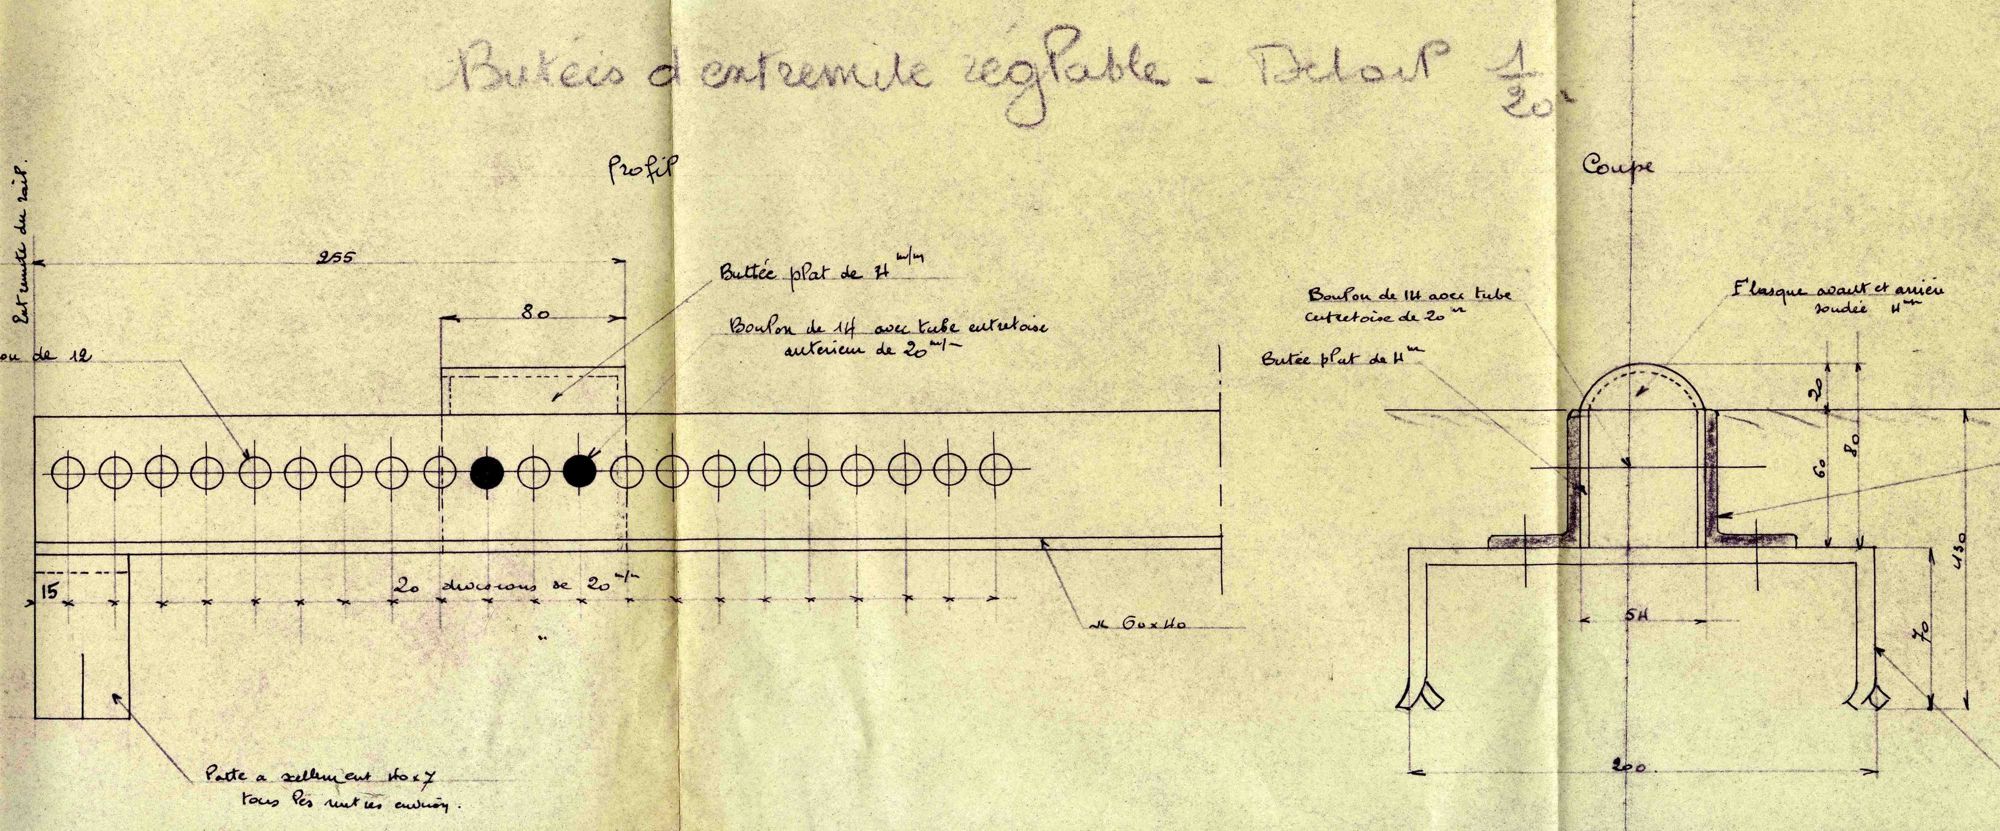 Butées d'extremite réglable - Detail 1/20e
Profil
Coupe
Extremite du rail.
255
80
Buttée plat de 4 m/m
Boulon de 14 avec tube entretoise
exterieur de 20 m/m
on de 12
15
20 divisions de 20 m/m
60x40
Patte a scellement 40x7
tous les metres environ.
Boulon de 14 avec tube
entretoise de 20 m
Butée plat de 4 m
Flasque avant et arrière
soudée 4 mm
20
60
80
130
54
70
200